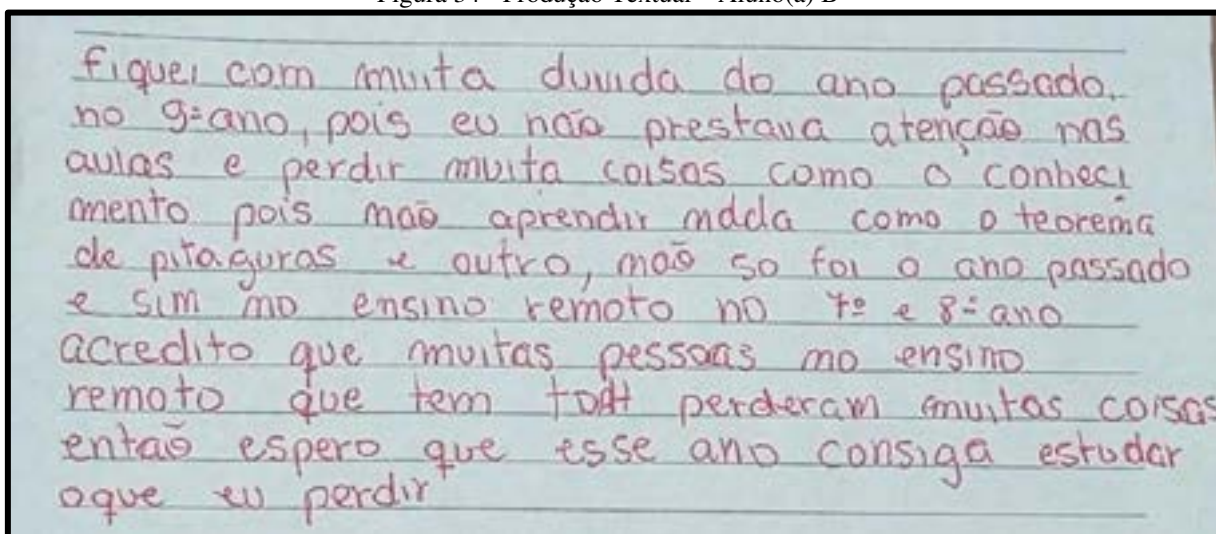 fiquei com muita duvida do ano passado.
no 9º ano, pois eu não prestava atenção nas
aulas e perdir muita coisas como o conheci
mento pois não aprendir nada como o teorema
de pitaguras e outro, não so foi o ano passado
e sim no ensino remoto no 7º e 8º ano
acredito que muitas pessoas no ensino
remoto que tem tDAH perderam muitas coisas
então espero que esse ano consiga estudar
oque eu perdir